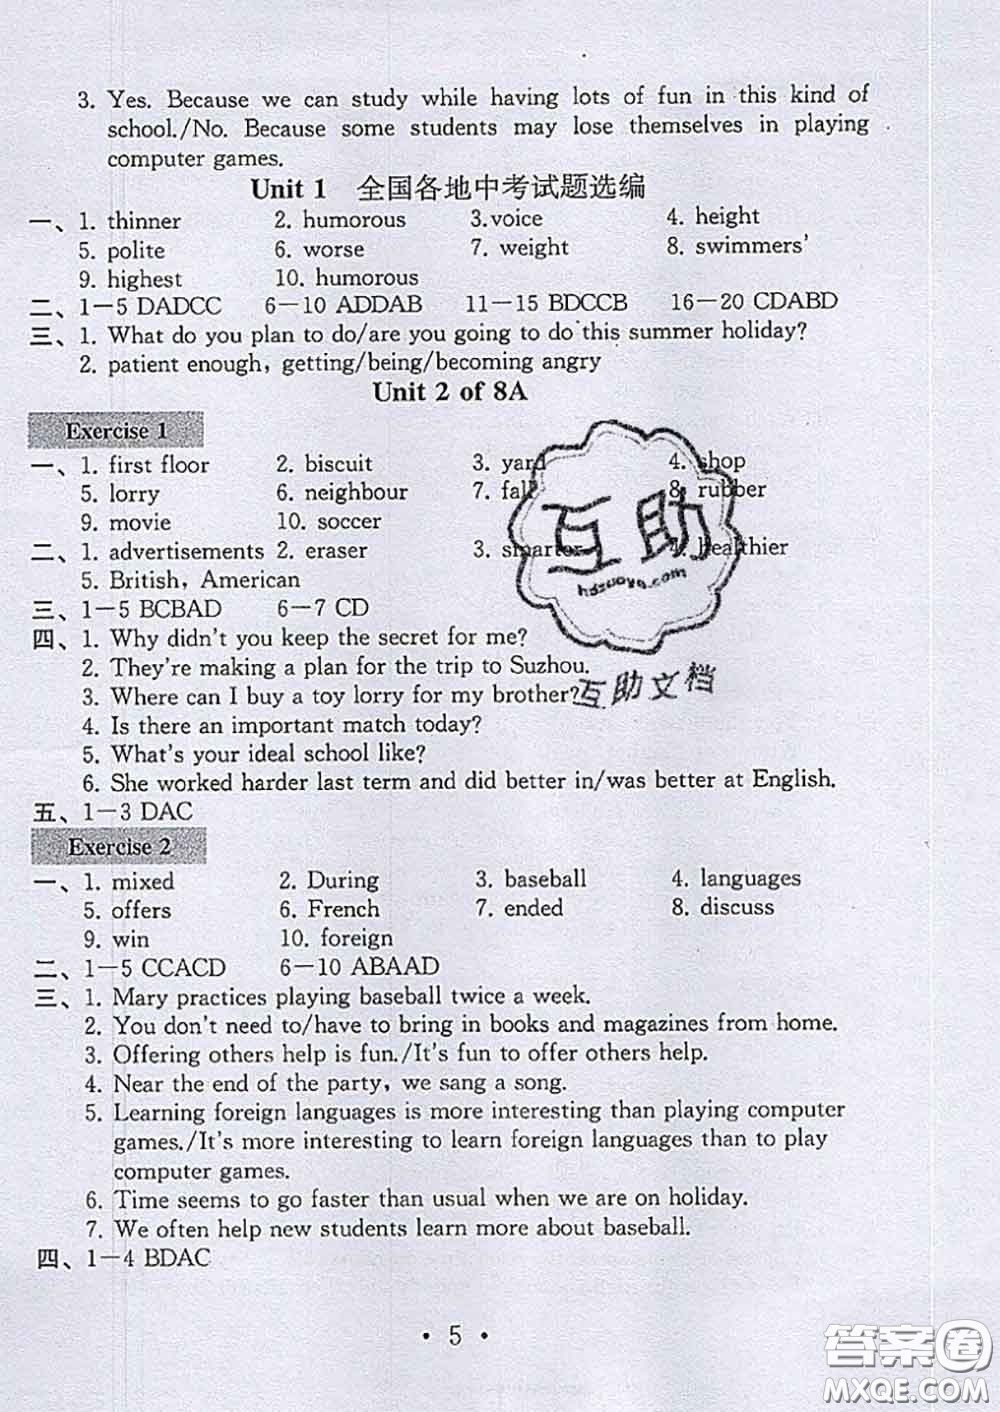 3. Yes. Because we can study while having lots of fun in this kind of
school./No. Because some students may lose themselves in playing
computer games.
Unit 1 全国各地中考试题选编
一、1. thinner 2. humorous 3. voice 4. height
5. polite 6. worse 7. weight 8. swimmers'
9. highest 10. humorous
二、1—5 DADCC 6—10 ADDAB 11—15 BDCCB 16—20 CDABD
三、1. What do you plan to do/are you going to do this summer holiday?
2. patient enough, getting/being/becoming angry
Unit 2 of 8A
Exercise 1
一、1. first floor 2. biscuit 3. yard 4. shop
5. lorry 6. neighbour 7. fall 8. rubber
9. movie 10. soccer
二、1. advertisements 2. eraser 3. smarter 4. healthier
5. British, American
三、1—5 BCBAD 6—7 CD
四、1. Why didn't you keep the secret for me?
2. They're making a plan for the trip to Suzhou.
3. Where can I buy a toy lorry for my brother?
4. Is there an important match today?
5. What's your ideal school like?
6. She worked harder last term and did better in/was better at English.
五、1—3 DAC
Exercise 2
一、1. mixed 2. During 3. baseball 4. languages
5. offers 6. French 7. ended 8. discuss
9. win 10. foreign
二、1—5 CCACD 6—10 ABAAD
三、1. Mary practices playing baseball twice a week.
2. You don't need to/have to bring in books and magazines from home.
3. Offering others help is fun./It's fun to offer others help.
4. Near the end of the party, we sang a song.
5. Learning foreign languages is more interesting than playing computer
games./It's more interesting to learn foreign languages than to play
computer games.
6. Time seems to go faster than usual when we are on holiday.
7. We often help new students learn more about baseball.
四、1—4 BDAC
• 5 •
互助
hdzuoye.com
互助文档
答案圈
MXQE.COM